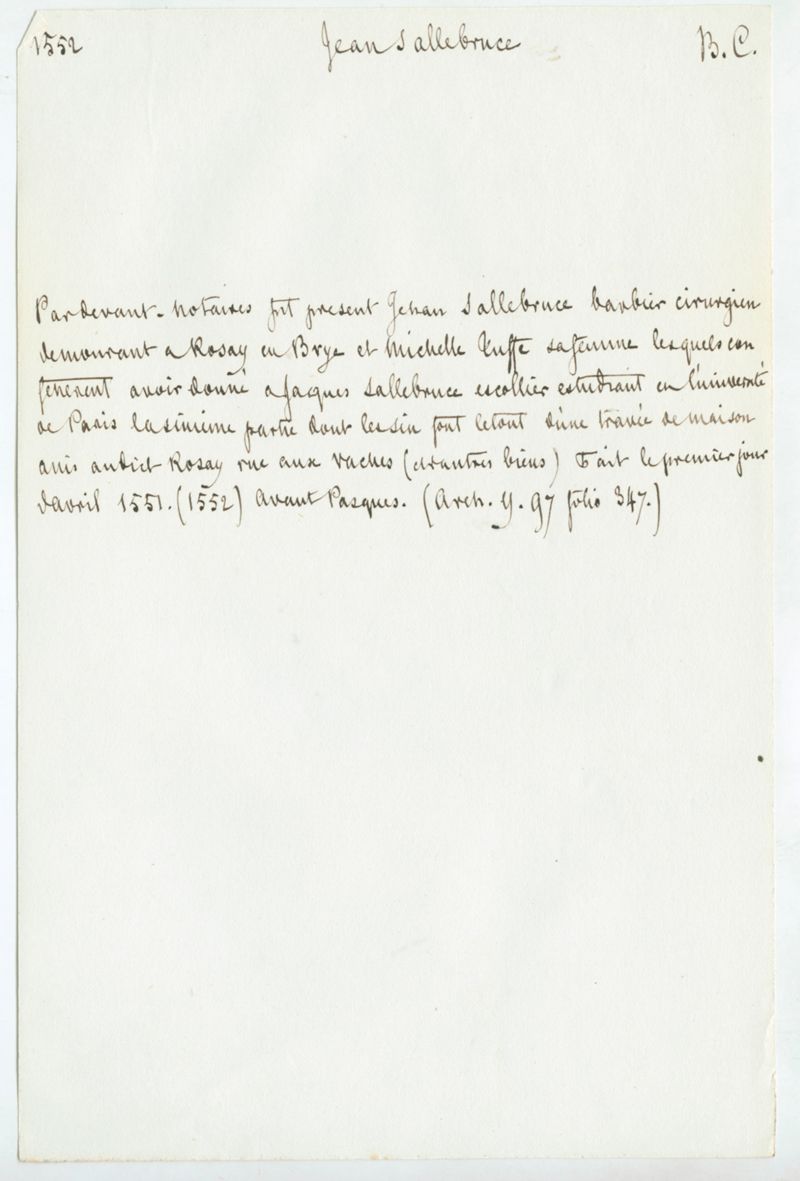 1552 Jean Sallebruce B. C.
Pardevant notaires fut present Jehan Sallebruce barbier cirurgien
demourant a Rosay en Brye et Michelle sa femme lesquels con
fesserent avoir donné a Jaques Sallebruce escollier estudiant en l'université
de Paris la sixieme partie dont les six font le tout d'une travée de maison
assis audict Rosay rue aux vaches (et dautres biens) Fait le premier jour
davril 1551. (1552) avant Pasques. (Arch. Y. 97 folio 347.)